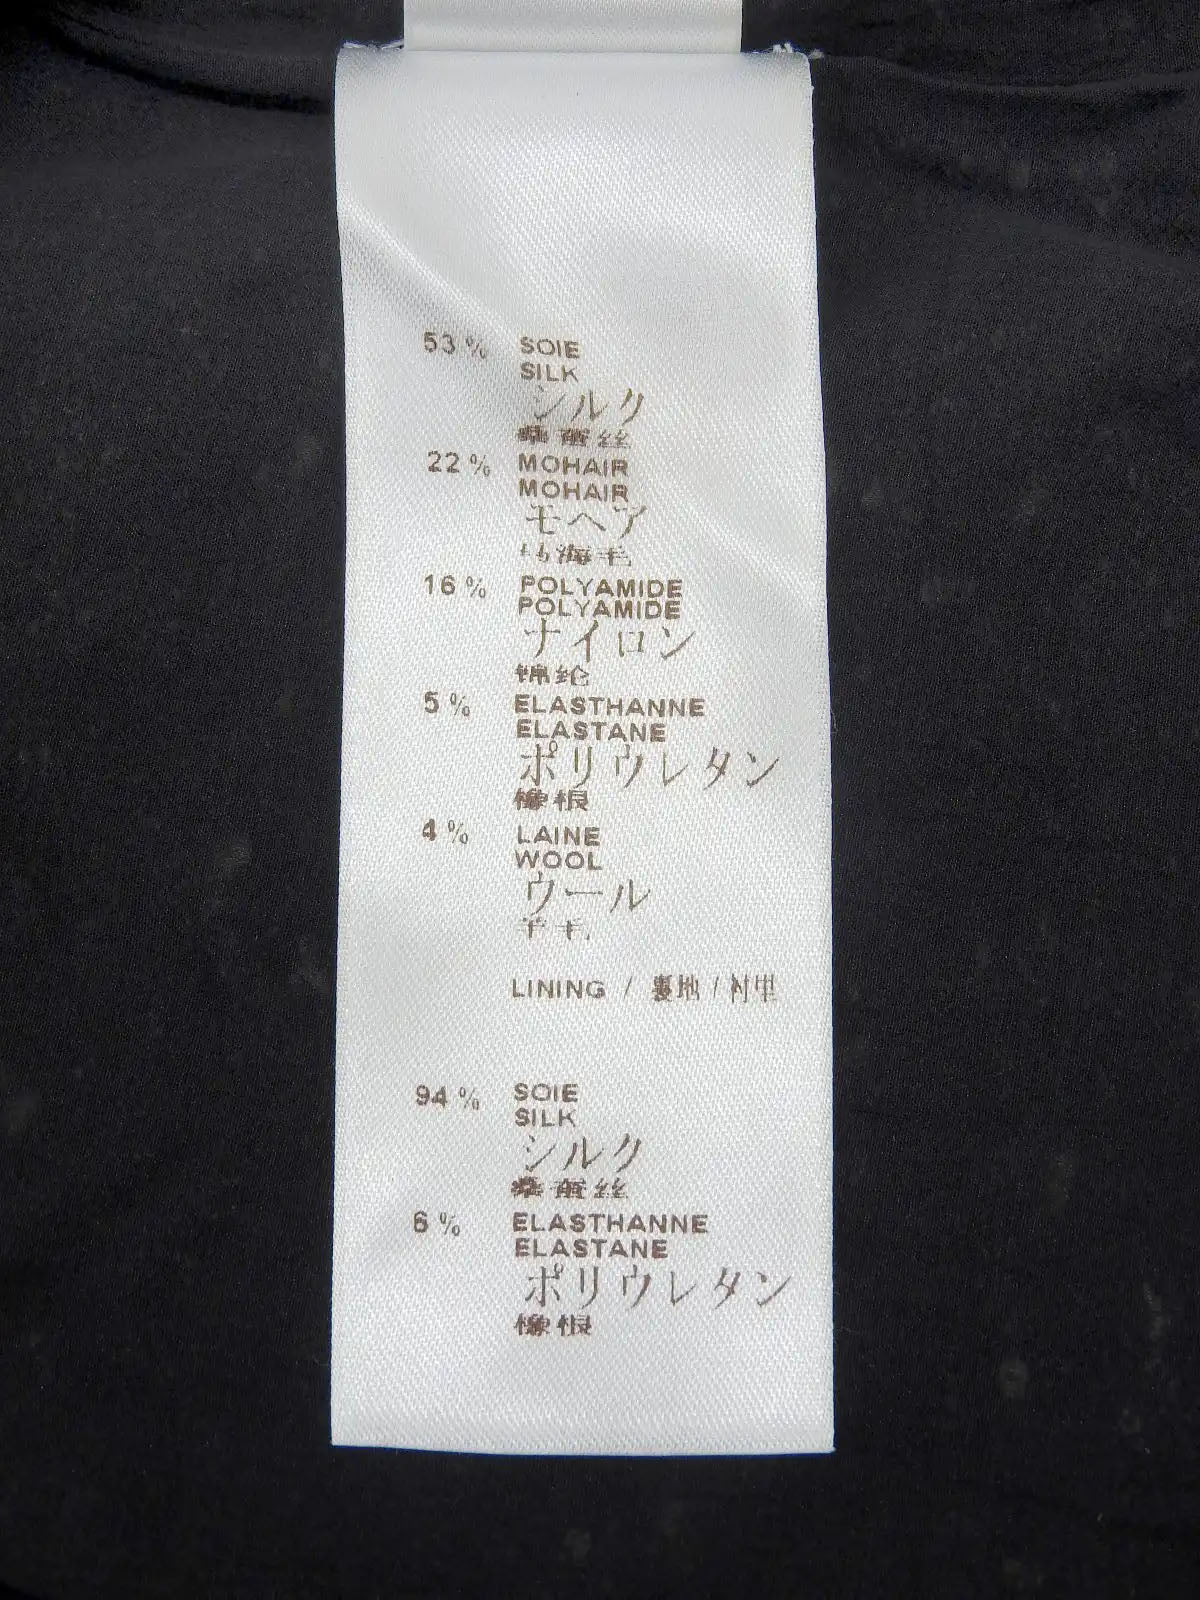 53 % SOIE
SILK
シルク
桑蚕丝
22 % MOHAIR
MOHAIR
モヘア
马海毛
16 % POLYAMIDE
POLYAMIDE
ナイロン
锦纶
5 % ELASTHANNE
ELASTANE
ポリウレタン
4 % LAINE
WOOL
ウール
羊毛
LINING / 裏地 / 衬里
94 % SOIE
SILK
シルク
桑蚕丝
6 % ELASTHANNE
ELASTANE
ポリウレタン